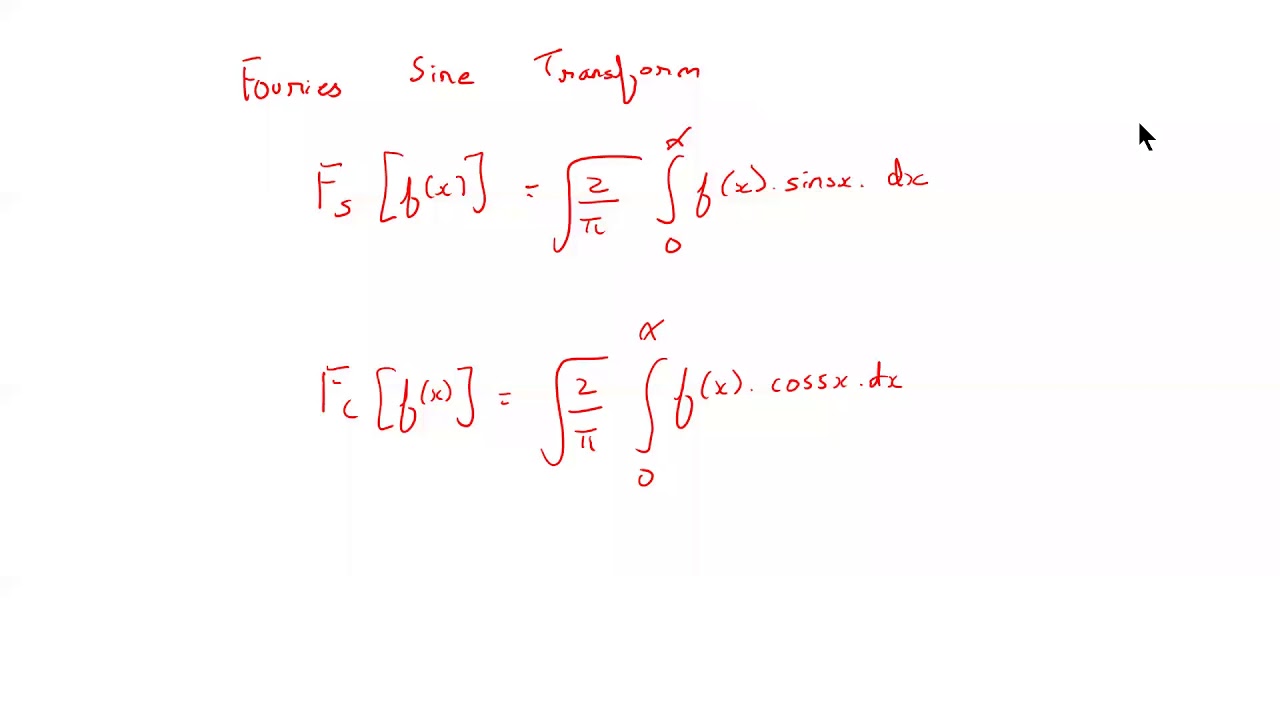 Fourier Sine Transform
F_s [f(x)] = √(2/π) ∫_0^∝ f(x). sinsx. dx
F_c [f(x)] = √(2/π) ∫_0^∝ f(x). cossx.dx